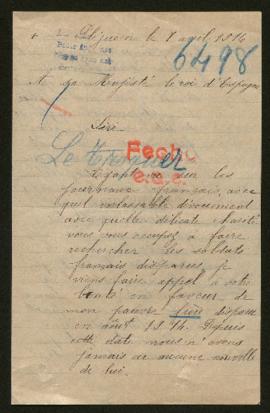 le 8 avril 1916
6498
A sa Majesté le roi d'Espagne
Sire
Fecho
Le Tournier
sur les
journaux français, avec
quel inlassable dévouement
avec quelle délicate charité
vous vous occupez à faire
rechercher les soldats
français disparus, je
viens faire appel à votre
bonté en faveur de
mon pauvre disparu
en août 1914. Depuis
cette date nous n'avons
jamais eu aucune nouvelle
de lui.